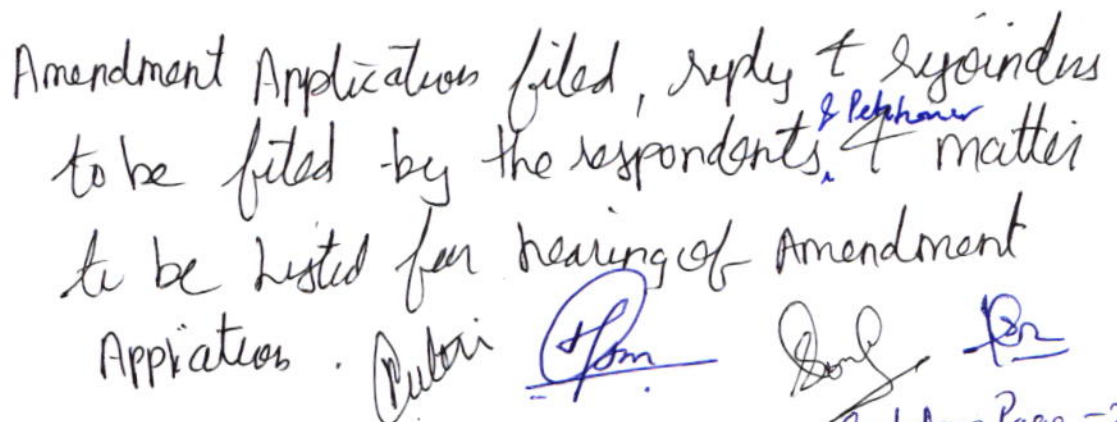 Amendment Application filed, reply & rejoinders
to be filed by the respondents & Petitioner & matter
to be Listed for hearing of Amendment
Appication .
Page -